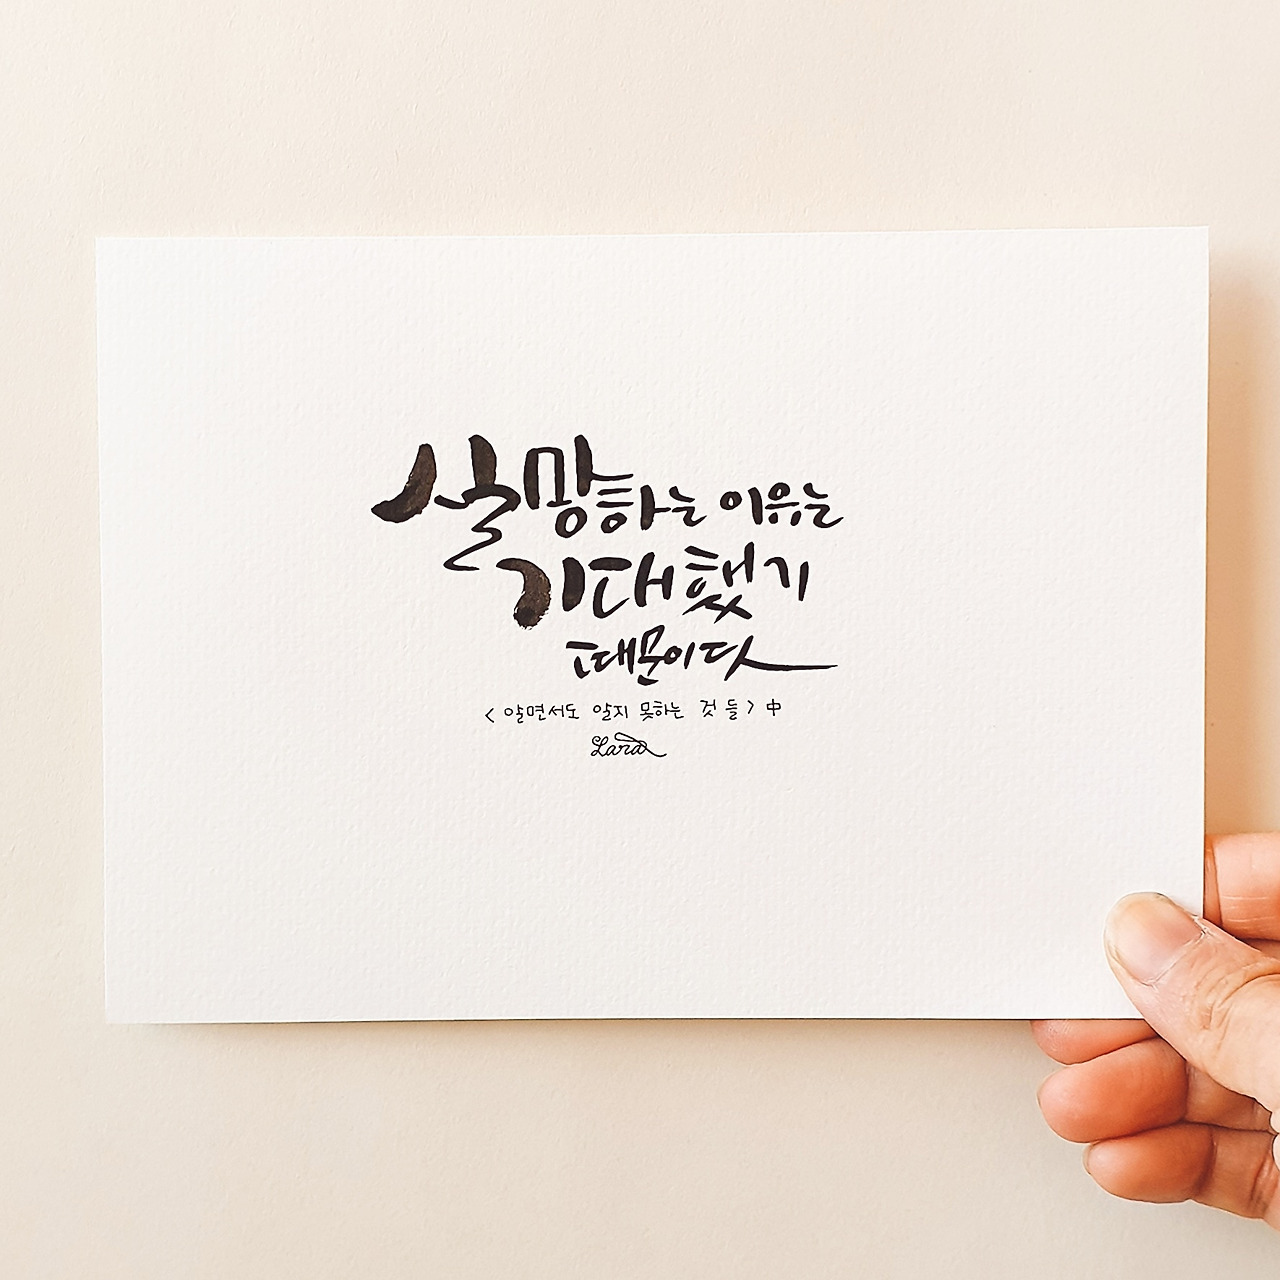 실망하는 이유는
기대했기
때문이다
< 알면서도 알지 못하는 것들 > 中
Lara